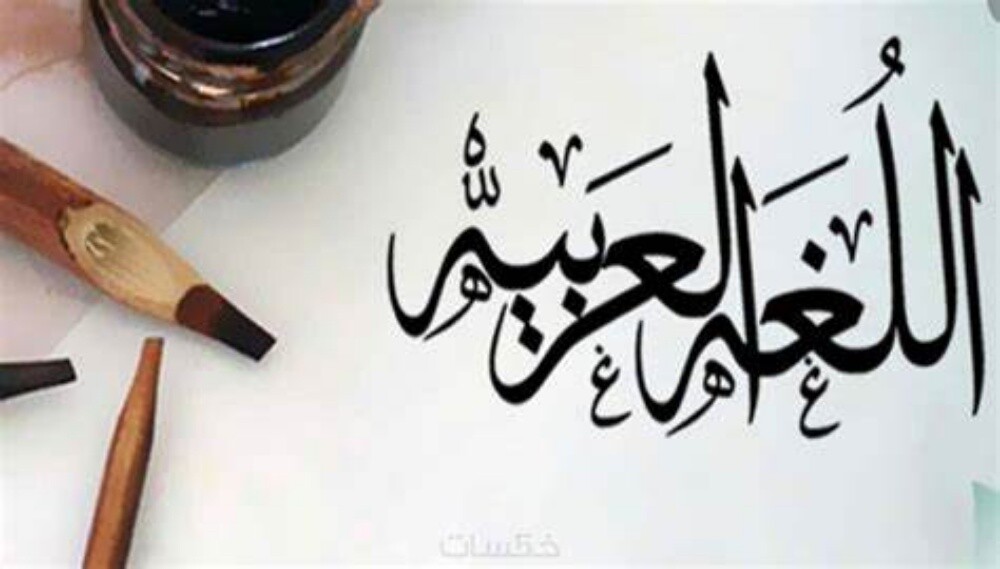 اللُغه العَربيه
خمسات